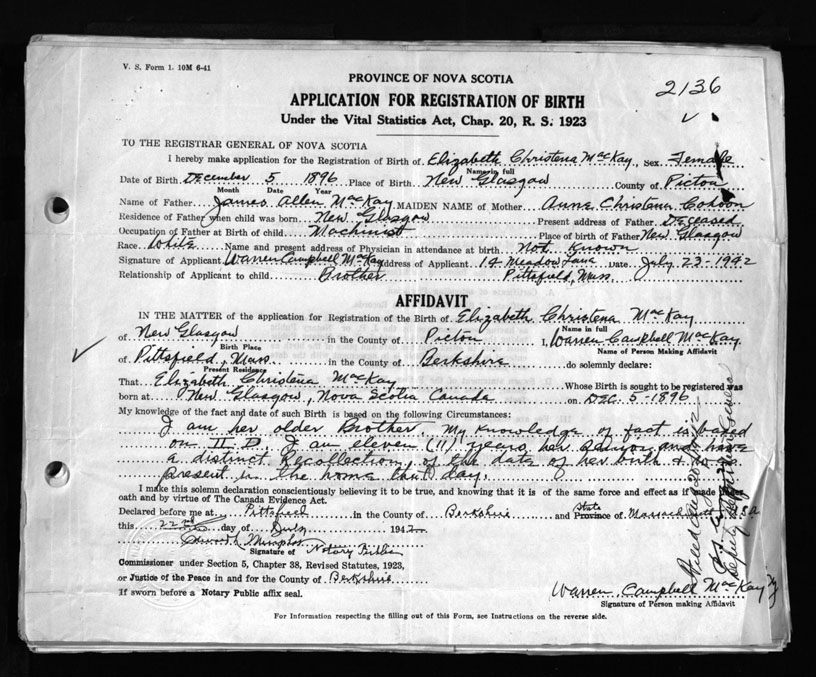 V. S. Form 1. 10M 6-41
2136
PROVINCE OF NOVA SCOTIA
APPLICATION FOR REGISTRATION OF BIRTH
Under the Vital Statistics Act, Chap. 20, R. S. 1923
TO THE REGISTRAR GENERAL OF NOVA SCOTIA
I hereby make application for the Registration of Birth of Elizabeth Christena MacKay, Sex Female
Name in full
Date of Birth December 5 1896 Place of Birth New Glasgow County of Pictou
Month Date Year
Name of Father James Allen MacKay MAIDEN NAME of Mother Anne Christena
Residence of Father when child was born New Glasgow Present address of Father Deceased
Occupation of Father at Birth of child Machinist Place of birth of Father New Glasgow
Race White Name and present address of Physician in attendance at birth Not Known
Signature of Applicant Warren Campbell MacKay Address of Applicant 14 Meadow Lane Date July 23-1942
Relationship of Applicant to child Brother Pittsfield, Mass.
AFFIDAVIT
IN THE MATTER of the application for Registration of the Birth of Elizabeth Christena MacKay
Name in full
of New Glasgow in the County of Pictou I, Warren Campbell MacKay
Birth Place Name of Person Making Affidavit
of Pittsfield, Mass. in the County of Berkshire do solemnly declare:
Present Residence
That Elizabeth Christena MacKay Whose Birth is sought to be registered was
born at New Glasgow, Nova Scotia Canada on DEC. 5-1896
My knowledge of the fact and date of such Birth is based on the following Circumstances:
I am her older Brother, My knowledge of fact is based
on I am eleven (11) years her Senior and have
a distinct Recollection of the date of her birth &
present in the home that day.
I make this solemn declaration conscientiously believing it to be true, and knowing that it is of the same force and effect as if made under
oath and by virtue of The Canada Evidence Act.
Declared before me at Pittsfield in the County of Berkshire and State Province of Massachusetts USA
this 22nd day of July 1942
Murphy
Signature of Notary Public
Commissioner under Section 5, Chapter 38, Revised Statutes, 1923,
or Justice of the Peace in and for the County of Berkshire
If sworn before a Notary Public affix seal.
Warren Campbell MacKay
Signature of Person making Affidavit
For Information respecting the filling out of this Form, see Instructions on the reverse side.
Deputy Registrar General